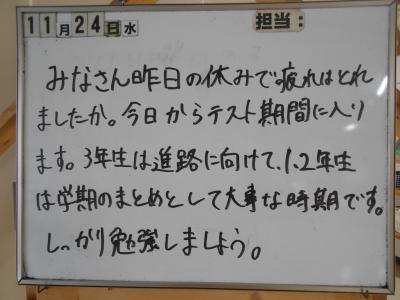 11月24日水 担当:
みなさん昨日の休みで疲れはとれ
ましたか。今日からテスト期間に入り
ます。3年生は進路に向けて、1.2年生
は学期のまとめとして大事な時期です。
しっかり勉強しましょう。